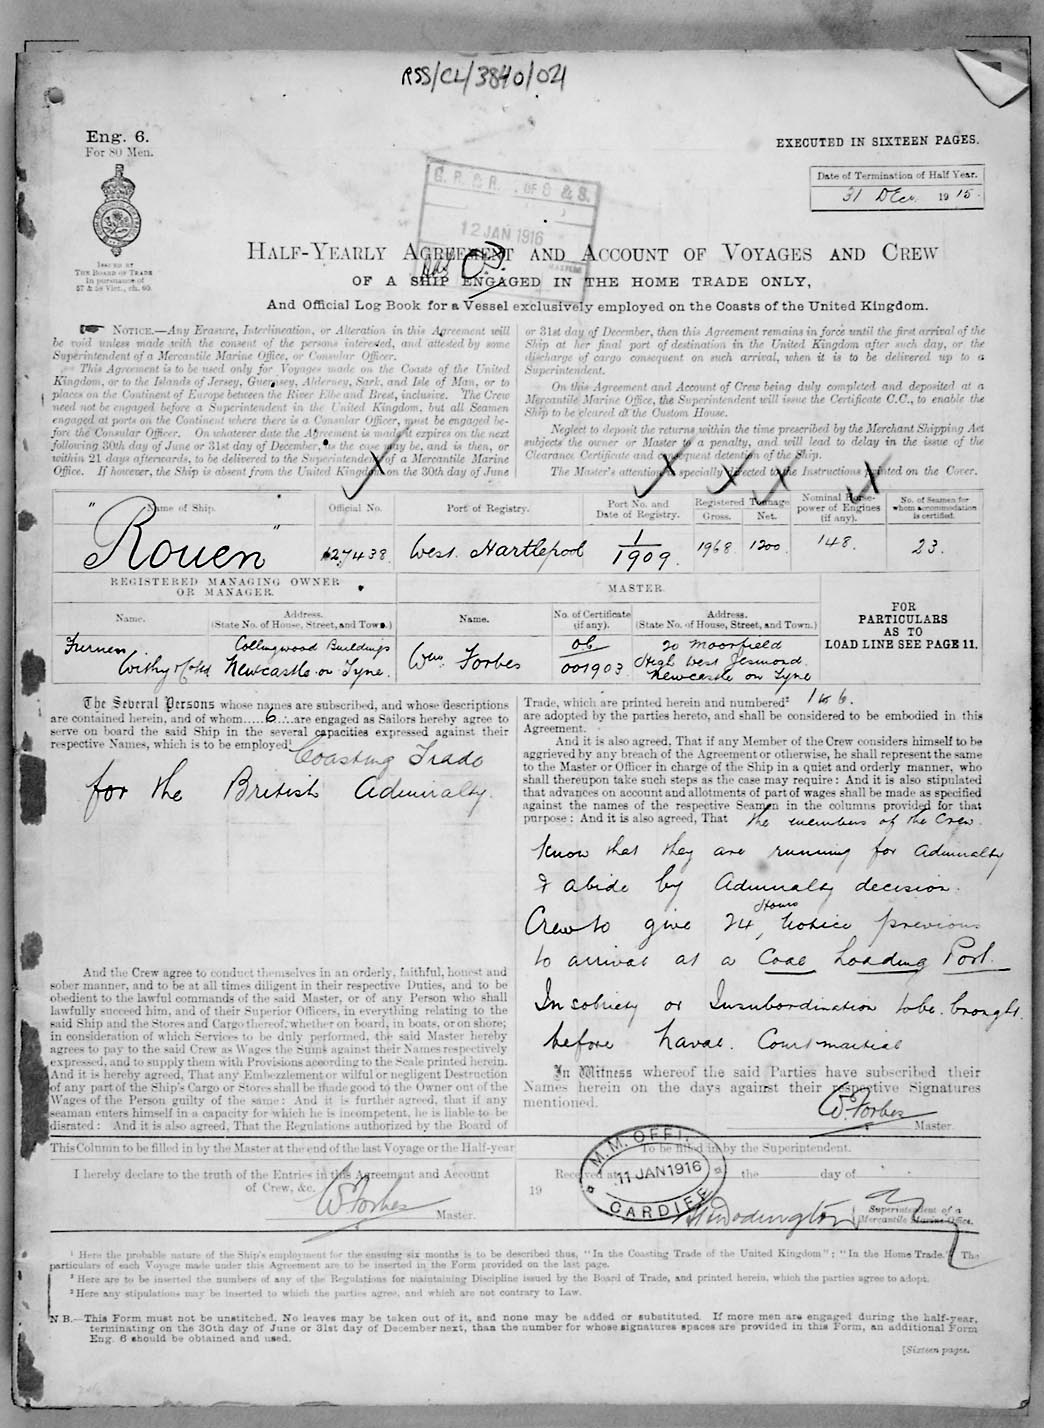 RSS/CL/3840/04
Eng. 6.
For 80 Men.
EXECUTED IN SIXTEEN PAGES.
Date of Termination of Half Year.
31 Dec. 1915.
ISSUED BY
THE BOARD OF TRADE
In pursuance of
57 & 58 Vict., ch. 60.
G. R. & R. OF S & S.
12 JAN 1916
HALF-YEARLY AGREEMENT AND ACCOUNT OF VOYAGES AND CREW
OF A SHIP ENGAGED IN THE HOME TRADE ONLY,
And Official Log Book for a Vessel exclusively employed on the Coasts of the United Kingdom.
NOTICE.—Any Erasure, Interlineation, or Alteration in this Agreement will
be void unless made with the consent of the persons interested, and attested by some
Superintendent of a Mercantile Marine Office, or Consular Officer.
This Agreement is to be used only for Voyages made on the Coasts of the United
Kingdom, or to the Islands of Jersey, Guernsey, Alderney, Sark, and Isle of Man, or to
places on the Continent of Europe between the River Elbe and Brest, inclusive. The Crew
need not be engaged before a Superintendent in the United Kingdom, but all Seamen
engaged at ports on the Continent where there is a Consular Officer, must be engaged be-
fore the Consular Officer. On whatever date the Agreement is made it expires on the next
following 30th day of June or 31st day of December, as the case may be, and is then, or
within 21 days afterwards, to be delivered to the Superintendent of a Mercantile Marine
Office. If however, the Ship is absent from the United Kingdom on the 30th day of June
or 31st day of December, then this Agreement remains in force until the first arrival of the
Ship at her final port of destination in the United Kingdom after such day, or the
discharge of cargo consequent on such arrival, when it is to be delivered up to a
Superintendent.
On this Agreement and Account of Crew being duly completed and deposited at a
Mercantile Marine Office, the Superintendent will issue the Certificate C.C., to enable the
Ship to be cleared at the Custom House.
Neglect to deposit the returns within the time prescribed by the Merchant Shipping Act
subjects the owner or Master to a penalty, and will lead to delay in the issue of the
Clearance Certificate and consequent detention of the Ship.
The Master's attention is specially directed to the Instructions printed on the Cover.
Name of Ship. Official No. Port of Registry. Port No. and Date of Registry. Registered Tonnage Gross. Net. Nominal Horse-power of Engines (if any). No. of Seamen for whom accommodation is certified.
"Rouen" 127438. West Hartlepool 1/1909. 1968 1200. 148. 23.
REGISTERED MANAGING OWNER
OR MANAGER.
MASTER.
FOR
PARTICULARS
AS TO
LOAD LINE SEE PAGE 11.
Name. Address. (State No. of House, Street, and Town.) Name. No. of Certificate (if any). Address. (State No. of House, Street, and Town.)
Furness Withy & Co Ltd
Collingwood Buildings
Newcastle on Tyne.
Wm Forbes
06
001903
20 Moorfield
High West Jesmond
Newcastle on Tyne
The Several Persons whose names are subscribed, and whose descriptions
are contained herein, and of whom.....6...are engaged as Sailors hereby agree to
serve on board the said Ship in the several capacities expressed against their
respective Names, which is to be employed¹ Coasting Trade
for the British Admiralty.
And the Crew agree to conduct themselves in an orderly, faithful, honest and
sober manner, and to be at all times diligent in their respective Duties, and to be
obedient to the lawful commands of the said Master, or of any Person who shall
lawfully succeed him, and of their Superior Officers, in everything relating to the
said Ship and the Stores and Cargo thereof, whether on board, in boats, or on shore;
in consideration of which Services to be duly performed, the said Master hereby
agrees to pay to the said Crew as Wages the Sums against their Names respectively
expressed, and to supply them with Provisions according to the Scale printed herein.
And it is hereby agreed, That any Embezzlement or wilful or negligent Destruction
of any part of the Ship's Cargo or Stores shall be made good to the Owner out of the
Wages of the Person guilty of the same: And it is further agreed, that if any
seaman enters himself in a capacity for which he is incompetent, he is liable to be
disrated: And it is also agreed, That the Regulations authorized by the Board of
Trade, which are printed herein and numbered² 1 to 6.
are adopted by the parties hereto, and shall be considered to be embodied in this
Agreement.
And it is also agreed, That if any Member of the Crew considers himself to be
aggrieved by any breach of the Agreement or otherwise, he shall represent the same
to the Master or Officer in charge of the Ship in a quiet and orderly manner, who
shall thereupon take such steps as the case may require: And it is also stipulated
that advances on account and allotments of part of wages shall be made as specified
against the names of the respective Seamen in the columns provided for that
purpose: And it is also agreed, That the members of the Crew.
know that they are running for Admiralty
& abide by Admiralty decision.
Crew to give 24 Hours notice previous
to arrival at a Coal Loading Port.
Insobriety or Insubordination to be brought
before Naval Courtmartial
In Witness whereof the said Parties have subscribed their
Names herein on the days against their respective Signatures
mentioned.
W. Forbes
Master.
This Column to be filled in by the Master at the end of the last Voyage or the Half-year
I hereby declare to the truth of the Entries in this Agreement and Account
of Crew, &c.
W Forbes Master.
To be filled in by the Superintendent.
Received at the day of
19
M. M. OFFI.
11 JAN 1916
CARDIFF
Superintendent of a
Mercantile Marine Office.
¹ Here the probable nature of the Ship's employment for the ensuing six months is to be described thus, "In the Coasting Trade of the United Kingdom"; "In the Home Trade." The
particulars of each Voyage made under this Agreement are to be inserted in the Form provided on the last page.
² Here are to be inserted the numbers of any of the Regulations for maintaining Discipline issued by the Board of Trade, and printed herein, which the parties agree to adopt.
³ Here any stipulations may be inserted to which the parties agree, and which are not contrary to Law.
N.B.—This Form must not be unstitched. No leaves may be taken out of it, and none may be added or substituted. If more men are engaged during the half-year,
terminating on the 30th day of June or 31st day of December next, than the number for whose signatures spaces are provided in this Form, an additional Form
Eng. 6 should be obtained and used.
[Sixteen pages.